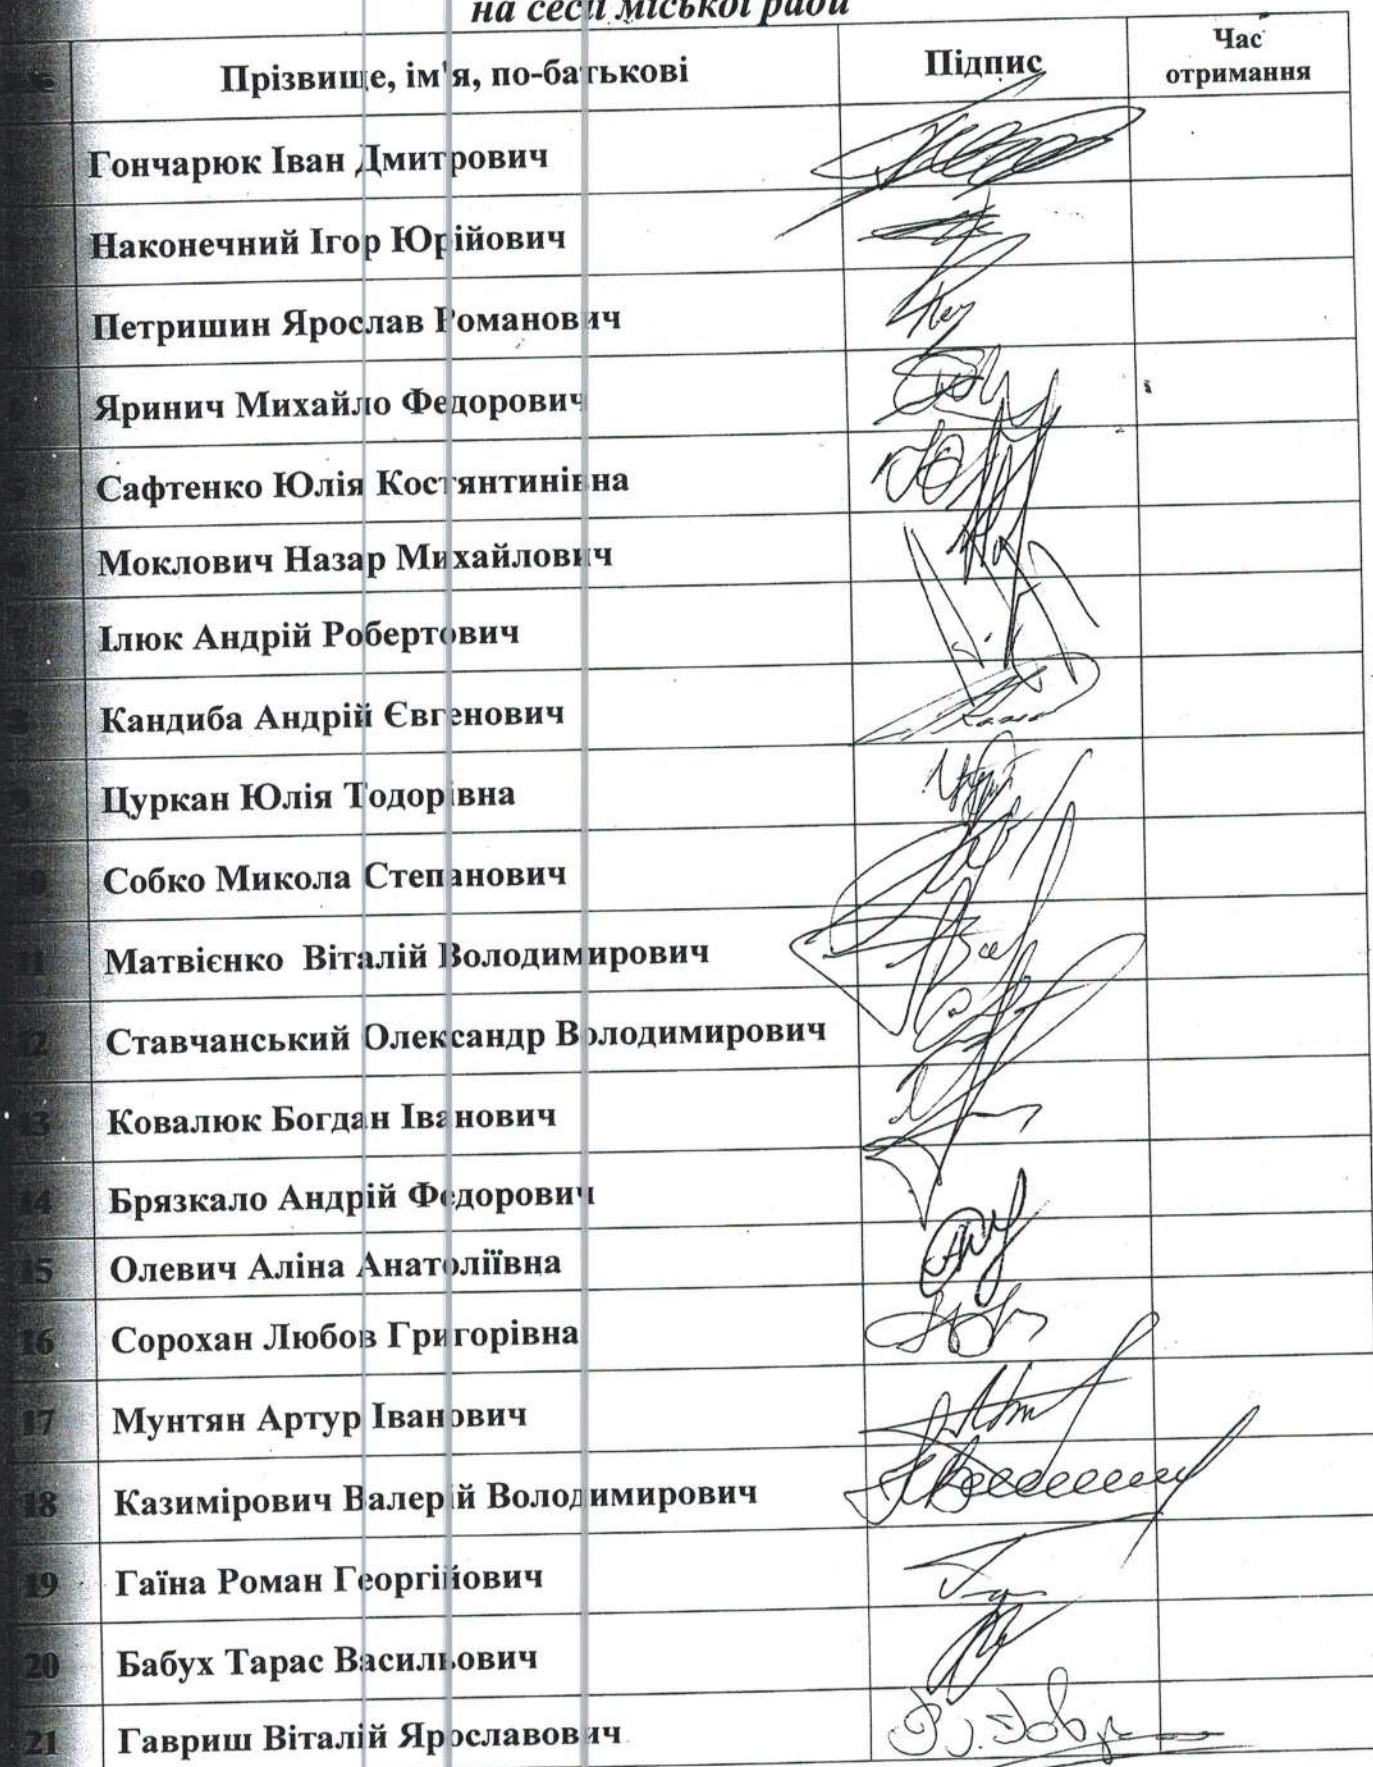 на сесії міської ради
№ Прізвище, ім'я, по-батькові Підпис Час отримання
Гончарюк Іван Дмитрович
Наконечний Ігор Юрійович
Петришин Ярослав Романович
Яринич Михайло Федорович
5 Сафтенко Юлія Костянтинівна
Моклович Назар Михайлович
Ілюк Андрій Робертович
8 Кандиба Андрій Євгенович
9 Цуркан Юлія Тодорівна
10 Собко Микола Степанович
11 Матвієнко Віталій Володимирович
12 Ставчанський Олександр Володимирович
13 Ковалюк Богдан Іванович
14 Брязкало Андрій Федорович
15 Олевич Аліна Анатоліївна
16 Сорохан Любов Григорівна
17 Мунтян Артур Іванович
18 Казимірович Валерій Володимирович
19 Гаїна Роман Георгійович
20 Бабух Тарас Васильович
21 Гавриш Віталій Ярославович